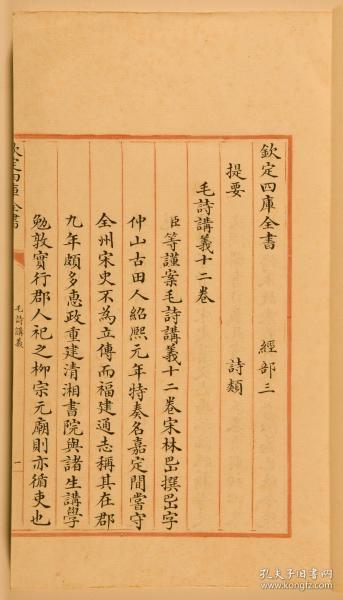 欽定四庫全書 經部三
提要 詩類
毛詩講義十二卷
臣等謹案毛詩講義十二卷宋林岊撰岊字
仲山古田人紹熙元年特奏名嘉定間嘗守
全州宋史不為立傳而福建通志稱其在郡
九年頗多惠政重建清湘書院與諸生講學
勉敦實行郡人祀之柳宗元廟則亦循吏也
欽定四庫全書
毛詩講義
一
孔夫子旧书网